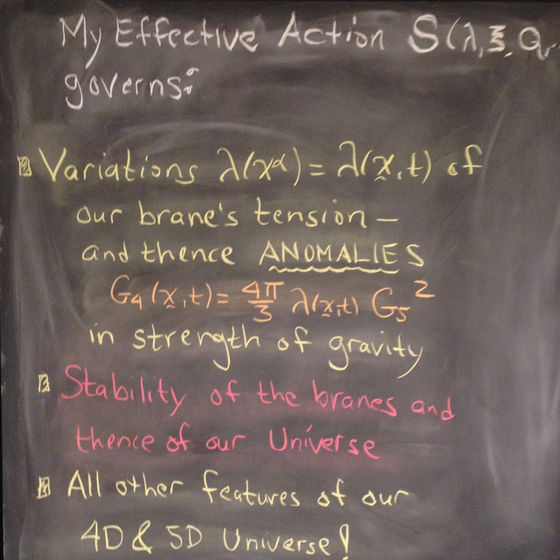 My Effective Action S(λ, ξ, Q
governs:
Variations λ(xᵅ) = λ(x̰, t) of
our brane's tension –
and thence ANOMALIES
G₄(x̰, t) = 4π/3 λ(x̰, t) G₅²
in strength of gravity
Stability of the branes and
thence of our Universe
All other features of our
4D & 5D Universe!